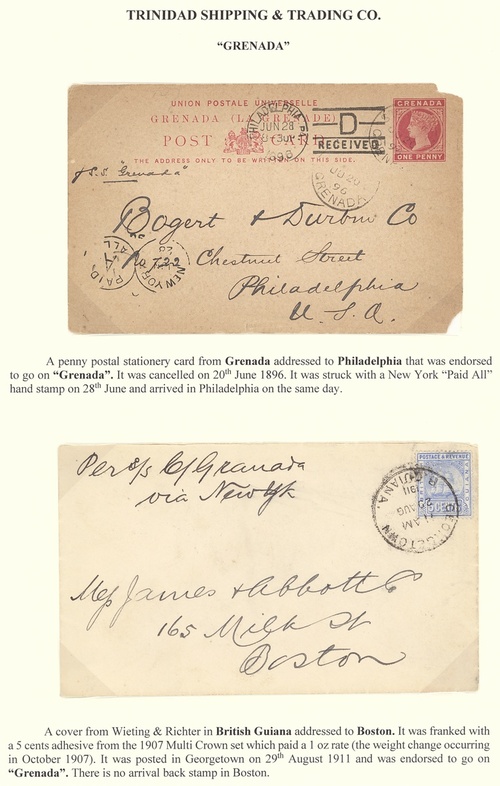 TRINIDAD SHIPPING & TRADING CO.
"GRENADA"
UNION POSTALE UNIVERSELLE
GRENADA (LA GRENADE)
POST CARD
THE ADDRESS ONLY TO BE WRITTEN ON THIS SIDE.
GRENADA
ONE PENNY
PHILADELPHIA PA
JUN 28
1896
D
RECEIVED
GRENADA
S.S. "Grenada"
Bogert & Durbin Co
No 722 Chestnut Street
Philadelphia
U. S. A.
PAID
ALL
NEW YORK
A penny postal stationery card from Grenada addressed to Philadelphia that was endorsed
to go on "Grenada". It was cancelled on 20th June 1896. It was struck with a New York "Paid All"
hand stamp on 28th June and arrived in Philadelphia on the same day.
Per s/s Granada
via New Yk
POSTAGE & REVENUE
GEORGETOWN
11 AM
29 AUG
1911
B. GUIANA.
Mess James & Abbott Co
165 Milk St
Boston
A cover from Wieting & Richter in British Guiana addressed to Boston. It was franked with
a 5 cents adhesive from the 1907 Multi Crown set which paid a 1 oz rate (the weight change occurring
in October 1907). It was posted in Georgetown on 29th August 1911 and was endorsed to go on
"Grenada". There is no arrival back stamp in Boston.